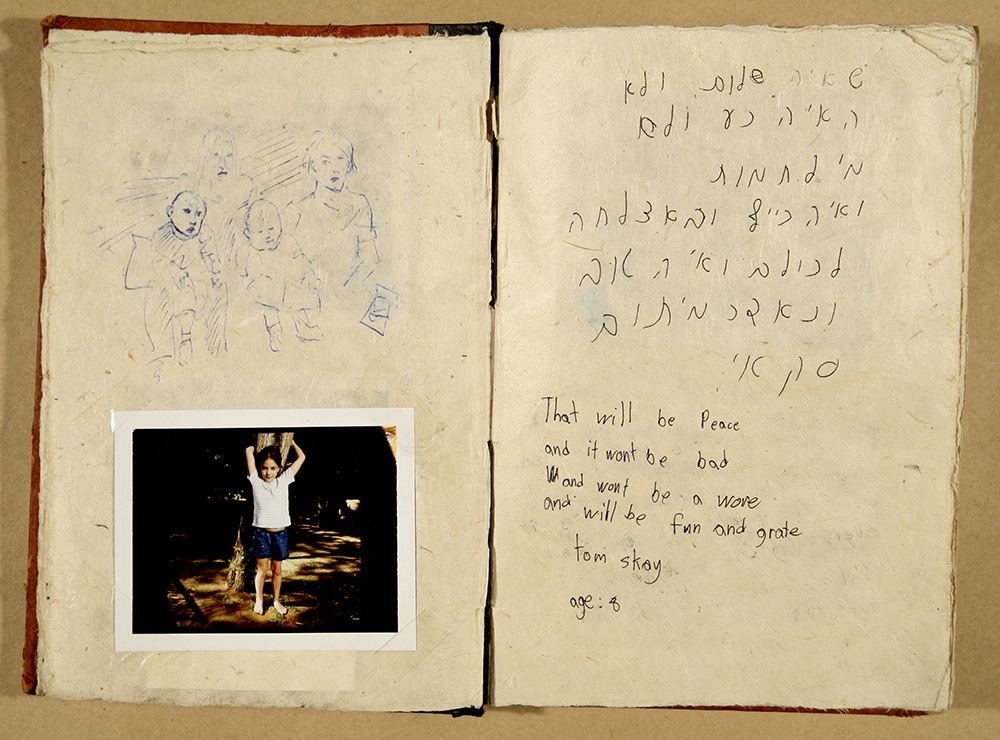 שאיה שלום ולא
האיה רע ולם
מ'לחמות
ואיה כייף ובאצלחה
לכולם ואיה טוב
That will be Peace
and it wont be bad
and wont be a wore
and will be fun and grate
tom skay
age: 8